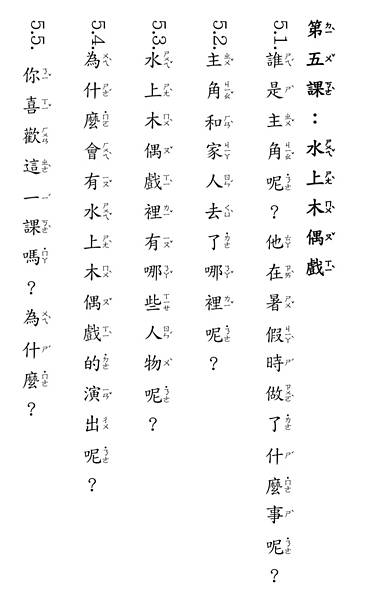 第五課：水上木偶戲
5.1. 誰是主角呢？他在暑假時做了什麼事呢？
5.2. 主角和家人去了哪裡呢？
5.3. 水上木偶戲裡有哪些人物呢？
5.4. 為什麼會有水上木偶戲的演出呢？
5.5. 你喜歡這一課嗎？為什麼？